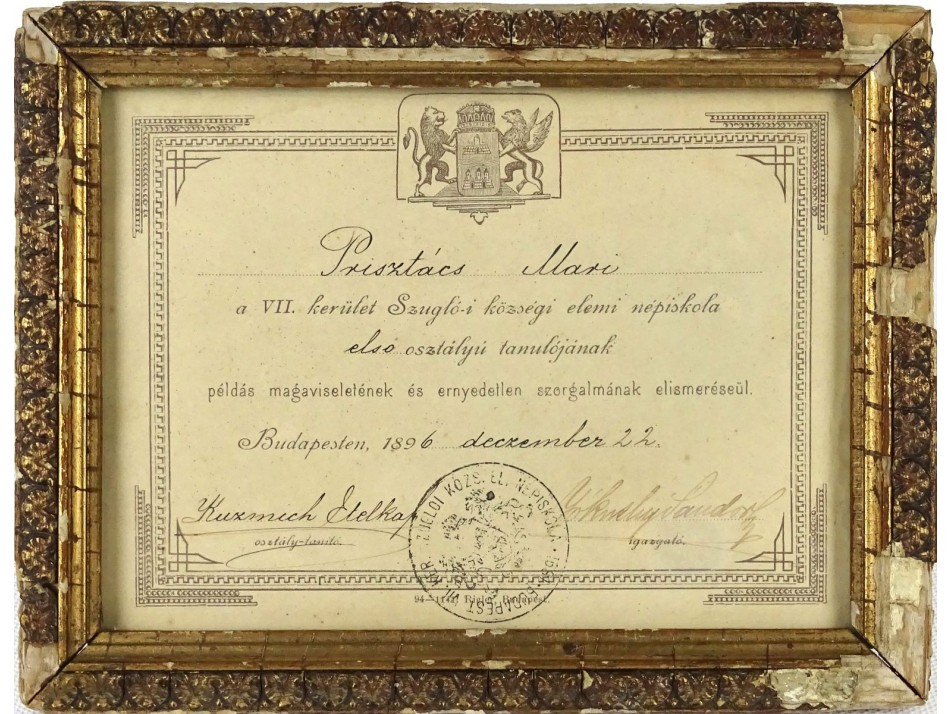 Prisztács Mari
a VII. kerület Szugló-i községi elemi népiskola
első osztályú tanulójának
példás magaviseletének és ernyedetlen szorgalmának elismeréseül.
Budapesten, 1896 deczember 22.
Kuzmich Etelka
osztály-tanító.
Sándor
igazgató.
KÖZS. EL. NÉPISKOLA
BUDAPEST VII. KER.
Rigler, Budapest.